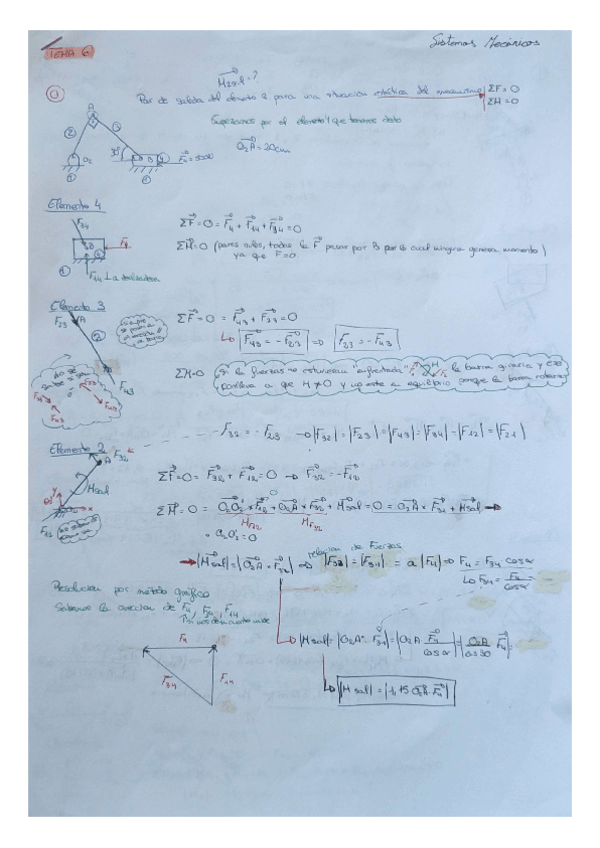 Sistemas Mecánicos
TEMA 6
①
M2sal = ?
Par de salida del elemento 2 para una situación estática del mecanismo ΣF = 0
ΣM = 0
Empezamos por el elemento 4 que tenemos dato
O₂A = 20cm
A
② ③
30° B ④
O₂
① ①
Elemento 4
F34
ΣF = 0 = F4 + F14 + F34 = 0
ΣM = 0 (pares nulos, todas las F pasan por B por lo cual ninguna genera momento)
ya que F = 0
B
F4
①
F14 ⊥ a
Elemento 3
F23 A
ΣF = 0 = F43 + F23 = 0
F43 = - F23 ⇒ F23 = - F43
F43
ΣM = 0
Si las fuerzas no estuviesen "enfrentadas" la barra giraría y eso
conlleva a que M ≠ 0 y no esté en equilibrio porque la barra
F32 = - F23 → |F32| = |F23| = |F43| = |F34|
Elemento 2
A F32
Msal
ΣF = 0 = F32 + F12 = 0 → F32 = - F12
ΣM = 0 = O₂O₂ × F12 + O₂A × F32 + Msal = 0 = O₂A × F32 + Msal →
MF12 MF32
O₂O₂ = 0
F12
relación de Fuerzas
→ |Msal| = |O₂A × F32| ⇒ |F32| = |F34| = a |F4| ⇒ F4 = F34 cosα
F34 = F4 / cosα
Resolución por método gráfico
Sabemos la dirección de F4, F34, F14
|Msal| = |O₂A · F34| = |O₂A F4 / cosα| = |O₂A / cos30 F4| =
F4
F34 F14
|Msal| = |1,15 O₂A · F4|